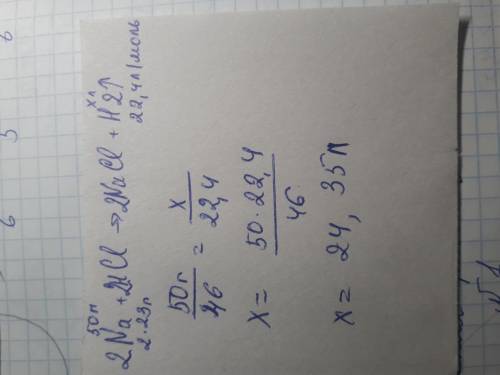 50г хл
2Na + 2HCl → 2NaCl + H2↑
2·23г 22,4л/моль
50г/46 = x/22,4
x = 50·22,4/46
x = 24,35л
6 5 6